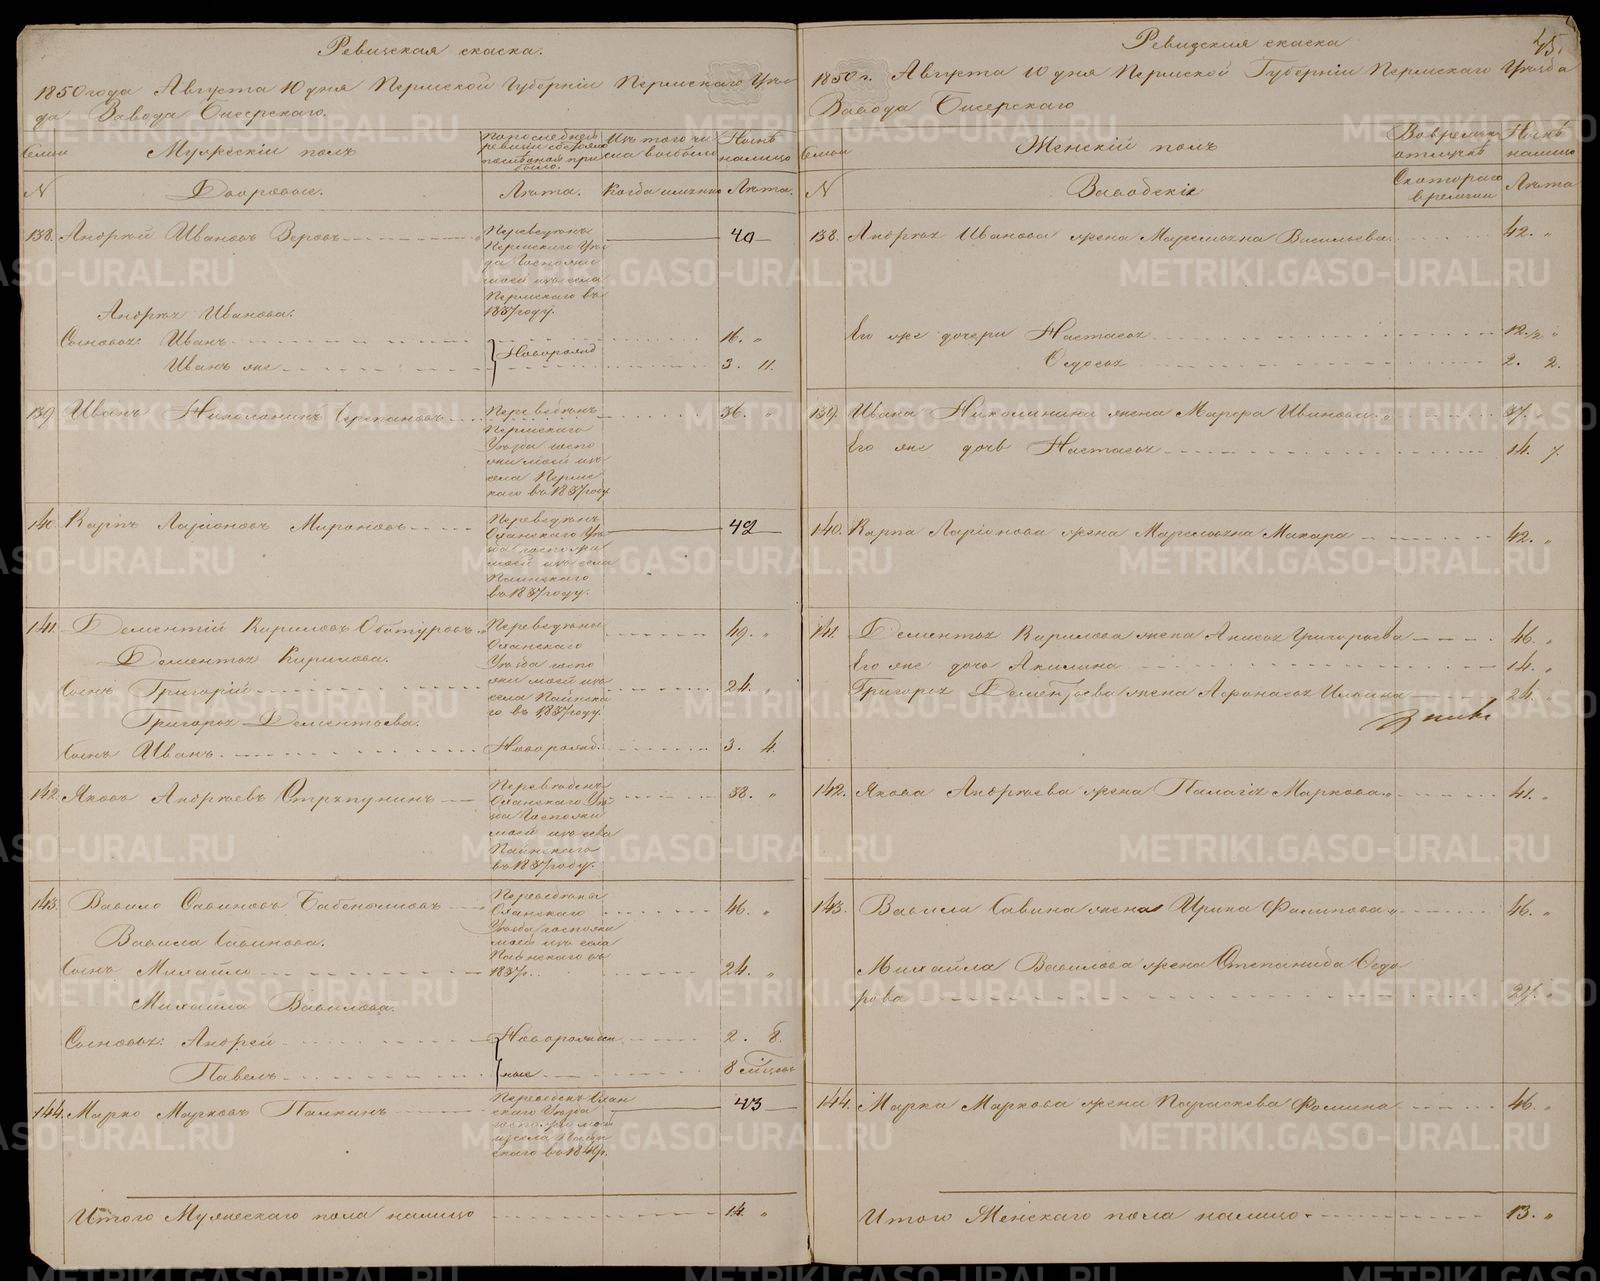 Ревизская скаска.
1850 года Августа 10 дня Пермской Губерніи Пермскаго Уѣз-
да Завода Бисерскаго.
Семьи
Мужескій полъ
По последней ревизіи состояло и послѣ оной прибыло
Изъ того числа выбыло
Нынѣ налицо
N
Дворовые.
Лѣта.
Когда именно
Лѣта.
138. Андрѣй Ивановъ Зеровъ
Переведенъ
Пермскаго Уѣз
да Госпожи
моей изъ села
Пермскаго въ
1837 году.
40
Андрѣя Иванова.
Сыновья: Иванъ
16. „
Иванъ же
Новорожд
3. 11.
139 Иванъ Николанинъ Черепановъ
Переведѣнъ
Пермскаго
Уѣзда госпо
жи моей изъ
села Перм
скаго въ 1837 году
36. „
140. Карпъ Ларіоновъ Мироновъ
Переведѣнъ
Оханскаго Уѣ
зда госпожи
моей изъ села
въ 1837 году.
42
141. Дементій Кириловъ Обатуровъ
Переведены
Оханскаго
Уѣзда госпо
жи моей изъ
села
го въ 1837 году.
49. „
Дементья Кирилова.
Сынъ Григорій
24. „
Григорья Дементьева.
Сынъ Иванъ
Новорожд.
3. 4.
142. Яковъ Андрѣевъ Стряпунинъ
Переведенъ
Оханскаго Уѣ
зда Госпожи
моей изъ села
въ 1837 году.
38. „
143. Вавило Савиновъ
Переведены
Оханскаго
Уѣзда госпожи
моей изъ села
1837г.
46. „
Вавила Савинова.
Сынъ Михайло
24. „
Михайла Вавилова.
Сыновья: Андрей
Новорожден
2. 8.
Павелъ
ные
8 мѣсяц
144. Марко Марковъ Палкинъ
Переведенъ Охан
скаго Уѣзда
госпожи моей
изъ села
43
Итого Мужескаго пола налицо
14. „
Ревизская скаска
45.
1850 г. Августа 10 дня Пермской Губерніи Пермскаго Уѣзда
Завода Бисерскаго
Семьи
Женскій полъ
Во временной отлучкѣ
Нынѣ налицо
N
Заводскіе
Съ котораго времени
Лѣта
138. Андрѣя Иванова жена Маремьяна Васильева
42. „
Его же дочери Настасья
12 1/2 „
Федосья
2. 2.
139. Ивана Николинина жена Марфа Иванова
37. „
Его же дочь Настасья
14. 7.
140. Карпа Ларіонова жена Маремьяна Макара
42. „
141. Дементья Кирилова жена Анисья Григорьева
46. „
Его же дочь Акилина
14. „
Григорья Дементьева жена Афанасья Ильина
24. „
142. Якова Андрѣева жена Палагія Маркова
41. „
143. Вавила Савина жена Ирина Филипова
46. „
Михайла Вавилова жена Степанида Федо
рова
27. „
144. Марка Маркова жена Параскева Фомина
46. „
Итого Женскаго пола налицо
13. „
METRIKI.GASO-URAL.RU